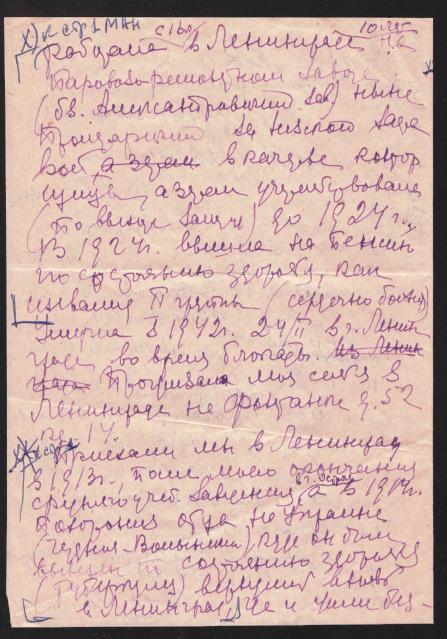 X) к стр 1 МАН с 1го 10 лет
Работала в Ленинграде на
Паровозо-ремонтном заводе
(бв. Александровский зав) ныне
Пролетарский за Невской заста
вой, а затем в качестве контор
щицы, а затем
(по выходе замуж) до 1924 г.
В 1924 г. вышла на пенсию
по состоянию здоровья, как
инвалид II группы (сердечно больная)
Умерла в 1942 г. 24/II в г. Ленин
граде во время блокады. Из Ленин
града Проживала моя семья в
Ленинграде на Фонтанке д. 52
кв. 14.
Приехали мы в Ленинград
в 1913 г., после моего окончания
среднего учеб. заведения, в г. Остроге а в 1914 г.
похоронив отца на Украине
(Чуднов-Волынский) где он был
по состоянию здоровья
(Туберкулез) вновь
в Ленинград, где и жили без-